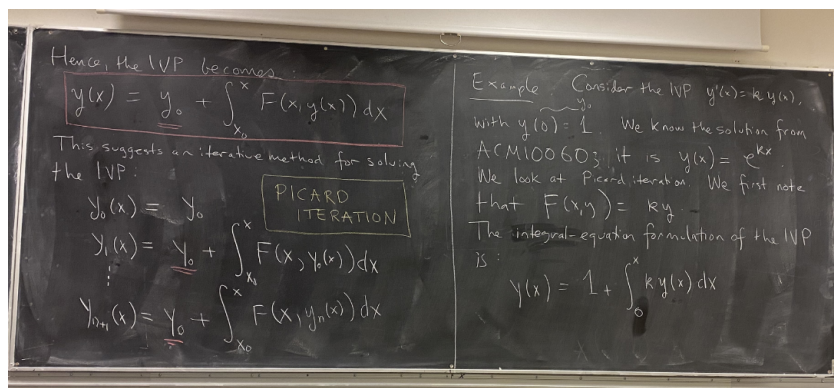 Hence, the IVP becomes:
y(x) = y₀ + ∫_{x₀}^{x} F(x, y(x)) dx
This suggests an iterative method for solving
the IVP:
PICARD
ITERATION
y₀(x) = y₀
y₁(x) = y₀ + ∫_{x₀}^{x} F(x, y₀(x)) dx
⋮
yₙ₊₁(x) = y₀ + ∫_{x₀}^{x} F(x, yₙ(x)) dx
Example. Consider the IVP y'(x) = k y(x),
y₀
with y(0) = 1. We know the solution from
ACM10060; it is y(x) = e^{kx}.
We look at Picard iteration. We first note
that F(x,y) = ky.
The integral-equation formulation of the IVP
is:
y(x) = 1 + ∫_{0}^{x} k y(x) dx